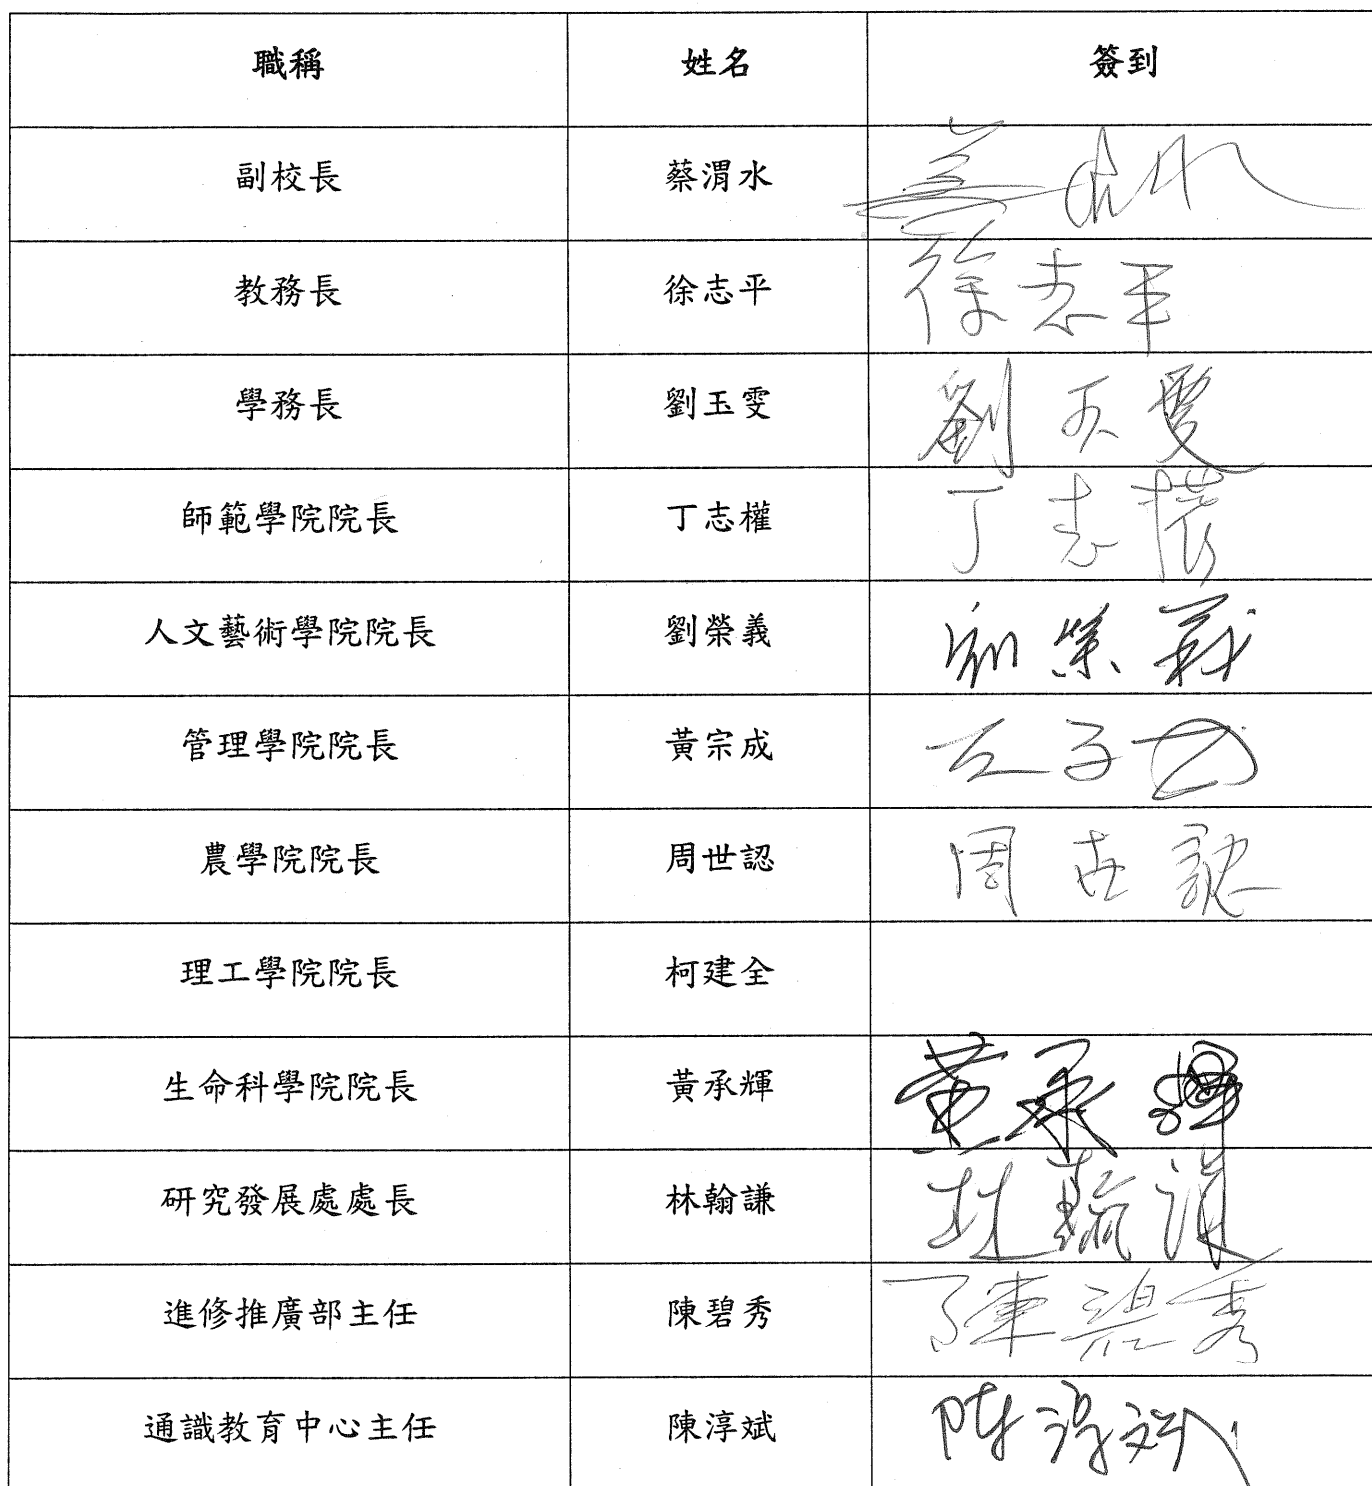 職稱 姓名 簽到
副校長 蔡渭水
教務長 徐志平 徐志平
學務長 劉玉雯 劉玉雯
師範學院院長 丁志權 丁志權
人文藝術學院院長 劉榮義 劉榮義
管理學院院長 黃宗成
農學院院長 周世認 周世認
理工學院院長 柯建全
生命科學院院長 黃承輝 黃承輝
研究發展處處長 林翰謙 林翰謙
進修推廣部主任 陳碧秀 陳碧秀
通識教育中心主任 陳淳斌 陳淳斌